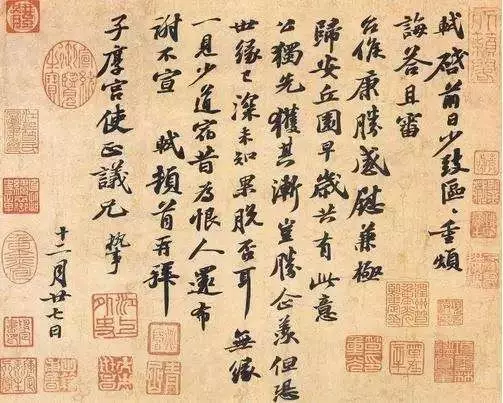 軾啓前日少致區區重煩
誨答且審
台候康勝感慰兼極
歸安丘園早歲共有此意
公獨先獲其漸豈勝企羨但恐
世緣已深未知果脫否耳無緣
一見少道宿昔為恨人還布
謝不宣軾頓首再拜
子厚宮使正議兄執事
十二月廿七日